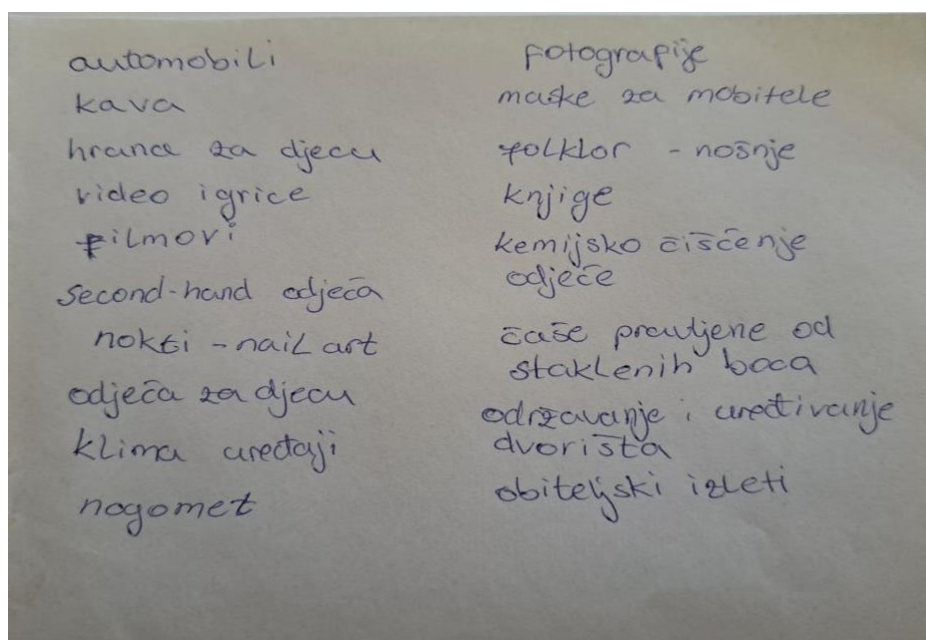 automobili
kava
hrana za djecu
video igrice
filmovi
second-hand odjeća
nokti - nail art
odjeća za djecu
klima uređaji
nogomet
fotografije
maske za mobitele
folklor - nošnje
knjige
kemijsko čišćenje
odjeće
čaše pravljene od
staklenih boca
održavanje i uređivanje
dvorišta
obiteljski izleti